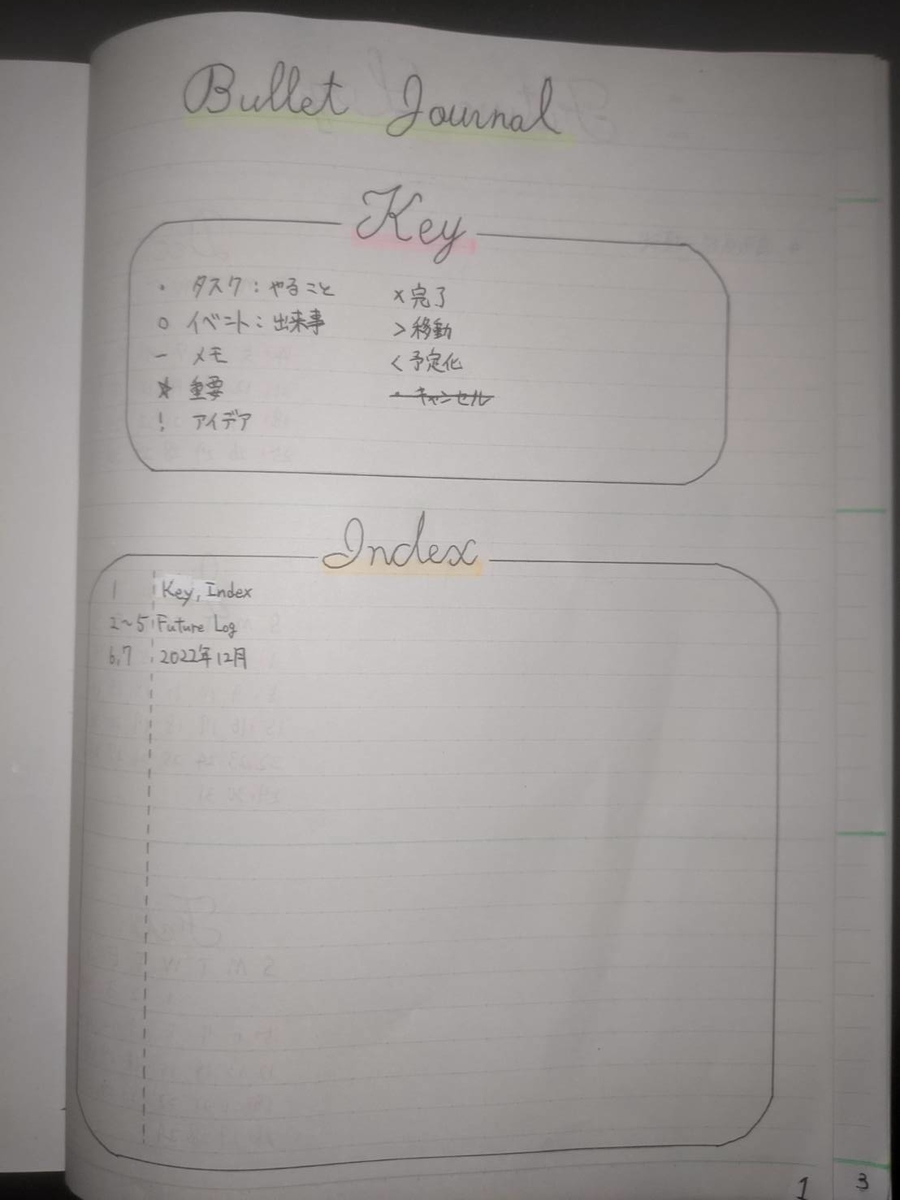 Bullet Journal
Key
・ タスク：やること
○ イベント：出来事
− メモ
★ 重要
! アイデア
× 完了
> 移動
< 予定化
・キャンセル
Index
1 Key, Index
2〜5 Future Log
6,7 2022年12月
1
3